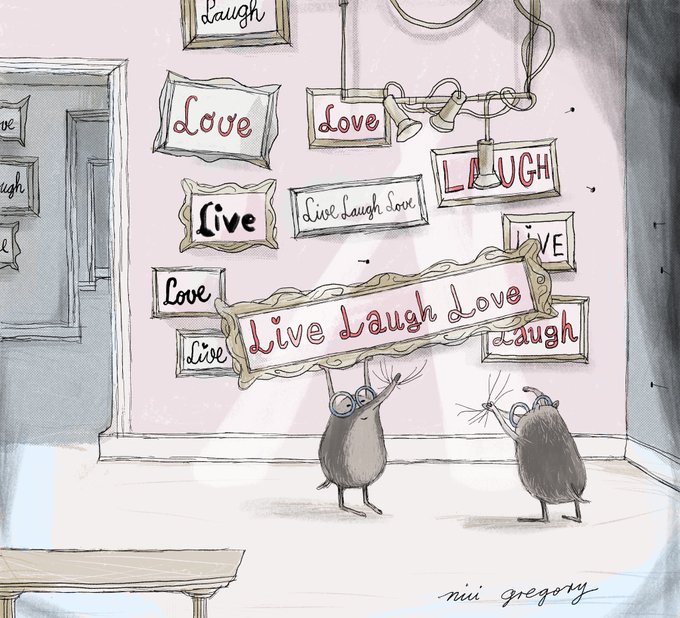 Laugh
Love
Love
LAUGH
ve
ugh
e
Live
Live Laugh Love
LIVE
Love
Live Laugh Love
Live
Laugh
niii gregory